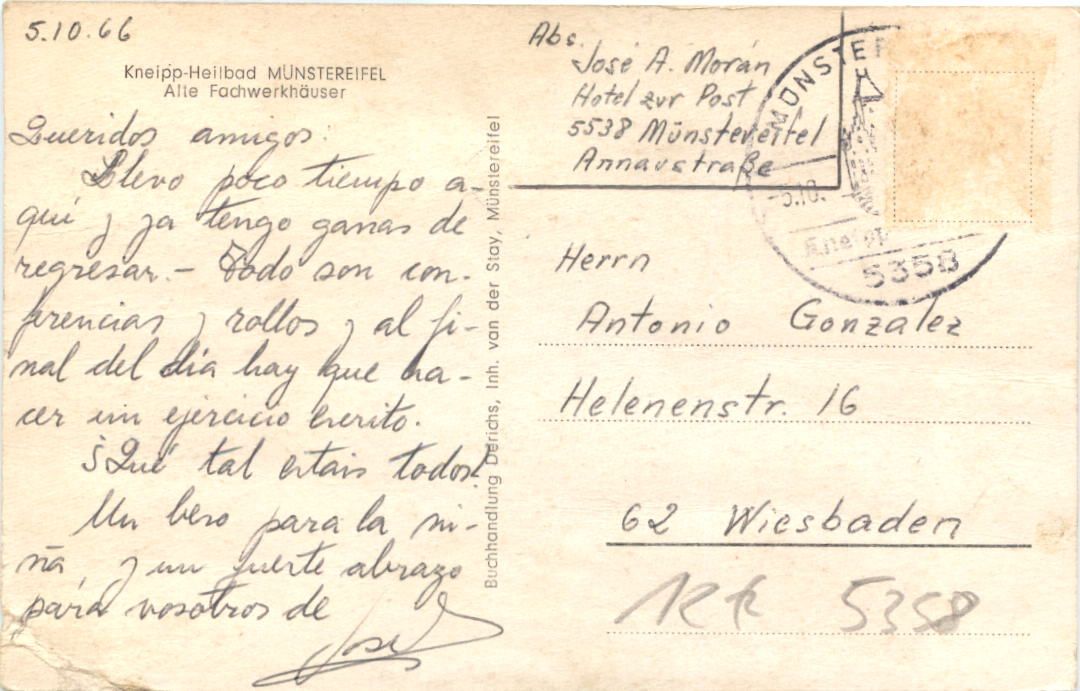 5.10.66
Kneipp-Heilbad MÜNSTEREIFEL
Alte Fachwerkhäuser
Queridos amigos:
Llevo poco tiempo a-
quí y ya tengo ganas de
regresar.- Todo son con-
ferencias y rollos y al fi-
nal del día hay que ha-
cer un ejercicio escrito.
¿Qué tal estais todos?
Un beso para la ni-
ña, y un fuerte abrazo
para vosotros de
José
Buchhandlung Derichs, Inh. van der Stay, Münstereifel
Abs.
José A. Morán
Hotel zur Post
5538 Münstereifel
Annaustraße
MÜNSTER
-5.10.
Kneipp
5358
Herrn
Antonio Gonzalez
Helenenstr. 16
62 Wiesbaden
5358